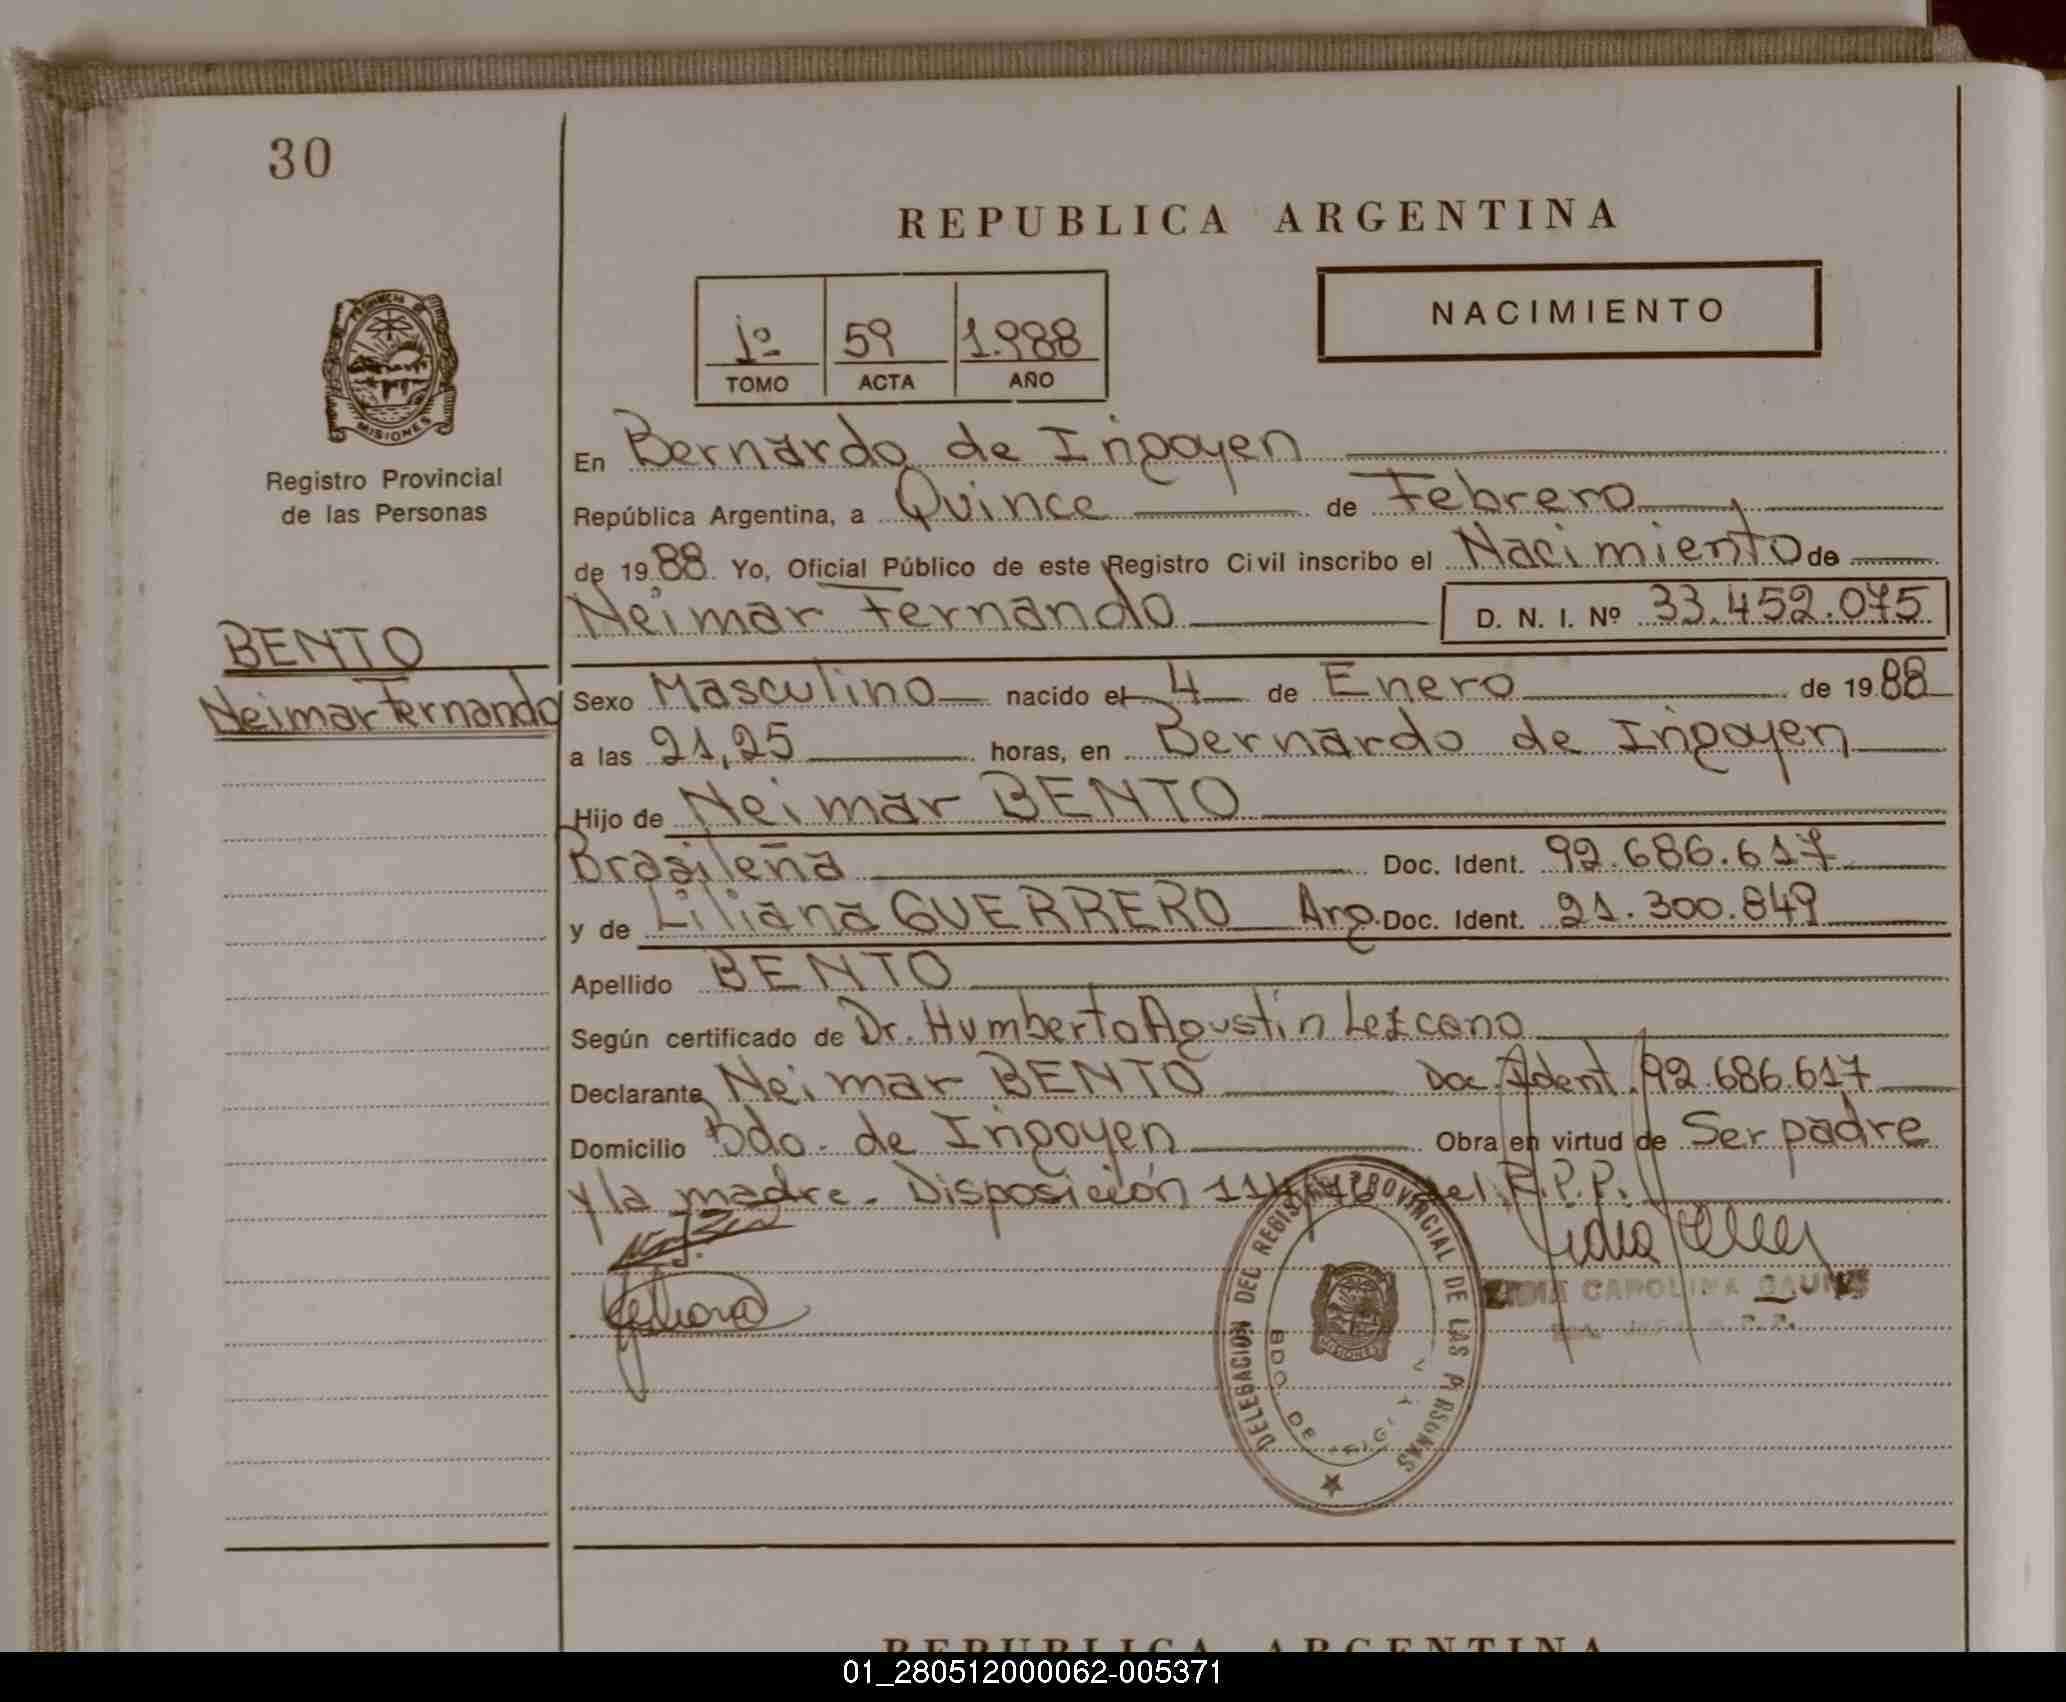 30
REPUBLICA ARGENTINA
1º 59 1.988
TOMO ACTA AÑO
NACIMIENTO
PROVINCIA
MISIONES
Registro Provincial
de las Personas
En Bernardo de Irigoyen
República Argentina, a Quince de Febrero
de 1988 Yo, Oficial Público de este Registro Civil inscribo el Nacimiento de
Neimar Fernando D. N. I. Nº 33.452.075
BENTO
Neimar Fernando
Sexo Masculino nacido el 4 de Enero de 1988
a las 21,25 horas, en Bernardo de Irigoyen
Hijo de Neimar BENTO
Brasileña Doc. Ident. 92.686.617
y de Liliana GUERRERO Arg. Doc. Ident. 21.300.849
Apellido BENTO
Según certificado de Dr. Humberto Agustín Lezcano
Declarante Neimar BENTO Doc. Ident. 92.686.617
Domicilio Bdo. de Irigoyen Obra en virtud de Ser padre
y la madre. Disposición del R.P.P.
DELEGACION DEL REGISTRO PROVINCIAL DE LAS PERSONAS
BDO. DE
MISIONES
CAROLINA
REPUBLICA ARGENTINA
01_280512000062-005371